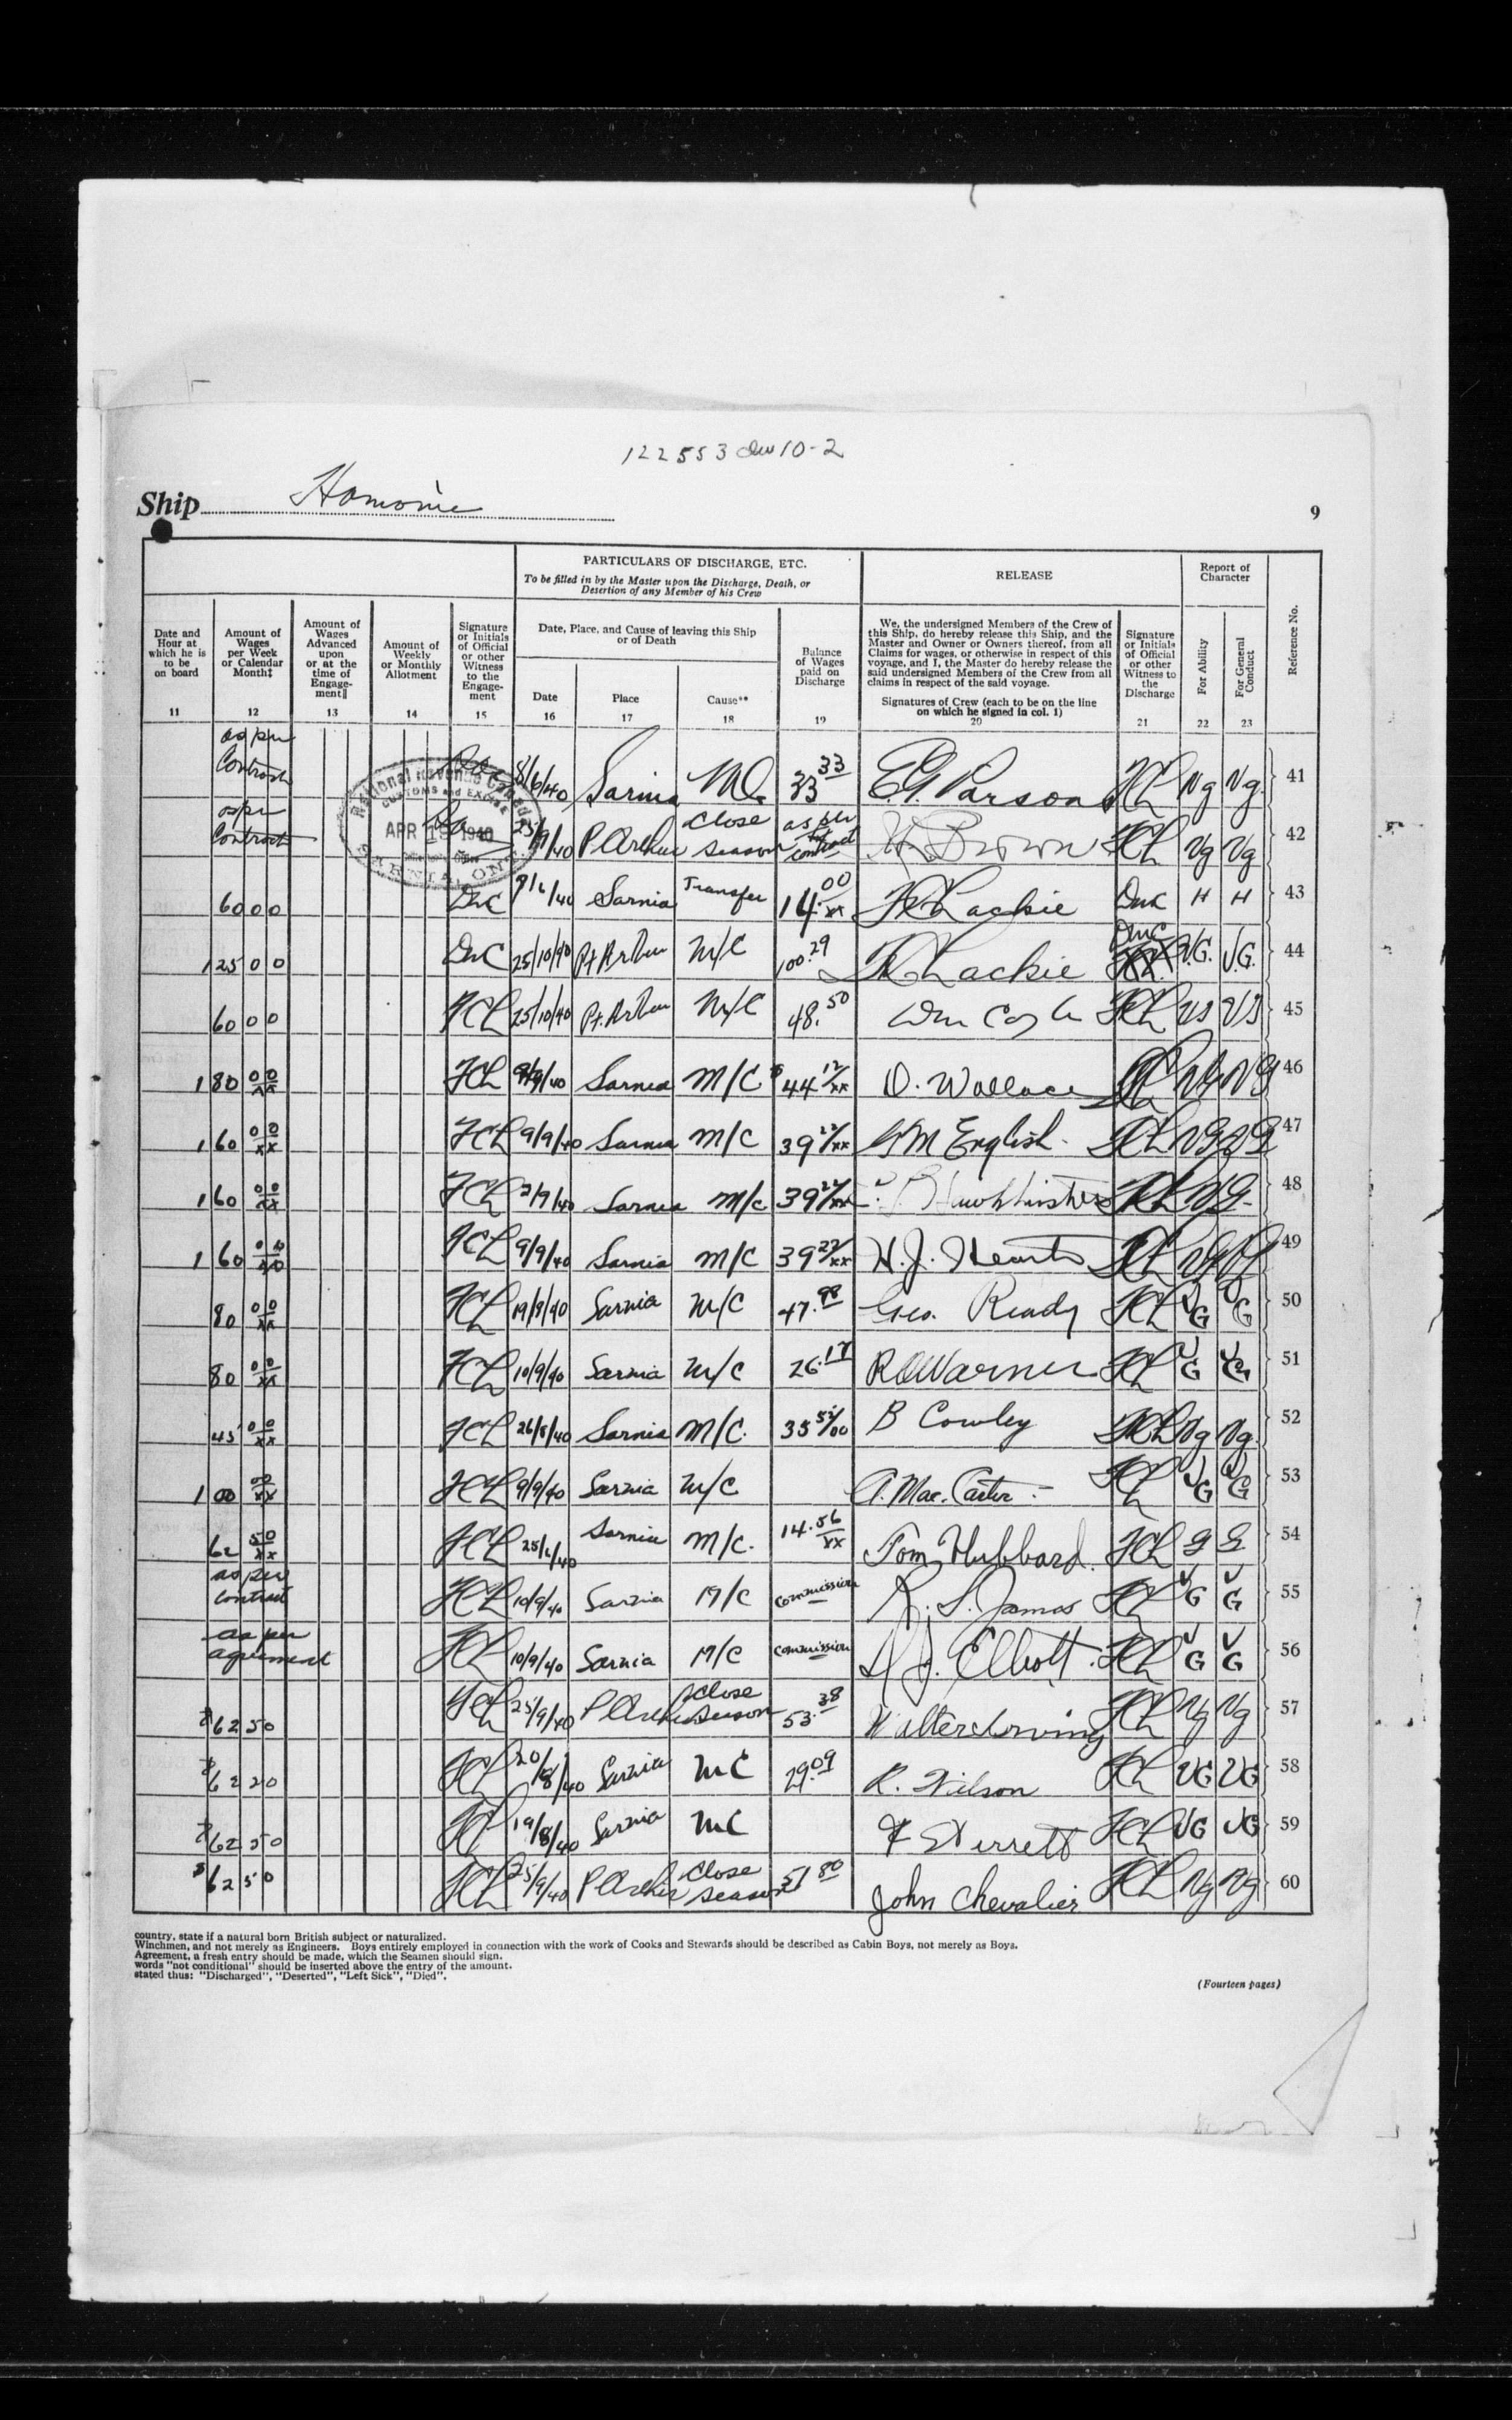 122553
10-2
Ship Hamonic
9
PARTICULARS OF DISCHARGE, ETC.
To be filled in by the Master upon the Discharge, Death, or
Desertion of any Member of his Crew
RELEASE
Report of
Character
Date and
Hour at
which he is
to be
on board
11
Amount of
Wages
per Week
or Calendar
Month‡
12
Amount of
Wages
Advanced
upon
or at the
time of
Engage-
ment‖
13
Amount of
Weekly
or Monthly
Allotment
14
Signature
or Initials
of Official
or other
Witness
to the
Engage-
ment
15
Date, Place, and Cause of leaving this Ship
or of Death
Date
16
Place
17
Cause**
18
Balance
of Wages
paid on
Discharge
19
We, the undersigned Members of the Crew of
this Ship, do hereby release this Ship, and the
Master and Owner or Owners thereof, from all
Claims for wages, or otherwise in respect of this
voyage, and I, the Master do hereby release the
said undersigned Members of the Crew from all
claims in respect of the said voyage.
Signatures of Crew (each to be on the line
on which he signed in col. 1)
20
Signature
or Initials
of Official
or other
Witness to
the
Discharge
21
For Ability
22
For General
Conduct
23
Reference No.
National Revenue Canada
CUSTOMS and EXCISE
APR 1940
SARNIA, ONT.
as per Contract 8/6/40 Sarnia 33 33 E.G. Parsons JCL Vg Vg. 41
as per Contract 25/9/40 P Arthur Close Season as per contract Brown JCL Vg Vg 42
60 00 DMC 9/6/40 Sarnia Transfer 14.00 xx Lackie DMC H H 43
125 00 DMC 25/10/40 Pt Arthur M/C 100.29 Lackie DMC V.G. V.G. 44
60 00 JCL 25/10/40 Pt. Arthur M/C 48.50 Wm Coyle JCL 45
180 00 xx JCL 9/9/40 Sarnia M/C $44 12/xx D. Wallace VG 46
160 00 xx JCL 9/9/40 Sarnia M/C 39 22/xx English JCL VG VG 47
160 00 xx JCL /9/40 Sarnia M/C 39 22/xx VG 48
160 00 JCL 9/9/40 Sarnia M/C 39 22/xx H.J. 49
80 00 xx JCL 19/9/40 Sarnia M/C 47.98 Geo. Ready JCL VG VG 50
80 00 xx JCL 10/9/40 Sarnia M/C 26. Warner JCL VG VG 51
45 00 xx JCL 26/8/40 Sarnia M/C. 35 B Cowley JCL Vg Vg. 52
100 00 xx JCL 9/9/40 Sarnia M/C A. Mac. Carter JCL VG VG 53
62 50 xx JCL 25/6/40 Sarnia M/C. 14.56 xx Tom Hubbard. JCL G G 54
as per Contract JCL 10/9/40 Sarnia M/C commission S. James JCL VG VG 55
as per agreement JCL 10/9/40 Sarnia M/C commission Elliott. JCL VG VG 56
$62 50 JCL 25/9/40 P Arthur Close Season 53.38 Walter Irving JCL Vg Vg 57
$62 20 JCL 20/8/40 Sarnia MC 29.09 R. Wilson JCL VG VG 58
$62 50 JCL 19/8/40 Sarnia MC Sterrett JCL VG VG 59
$62 50 JCL 25/9/40 P Arthur Close Season 51 80 John Chevalier JCL Vg Vg 60
country, state if a natural born British subject or naturalized.
Winchmen, and not merely as Engineers. Boys entirely employed in connection with the work of Cooks and Stewards should be described as Cabin Boys, not merely as Boys.
Agreement, a fresh entry should be made, which the Seamen should sign.
words "not conditional" should be inserted above the entry of the amount.
stated thus: "Discharged", "Deserted", "Left Sick", "Died".
(Fourteen pages)